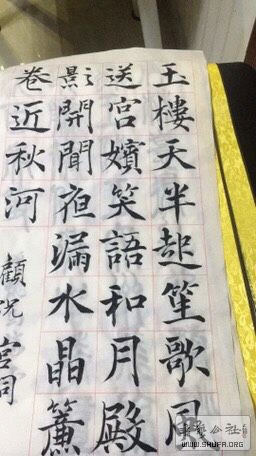 玉樓天半起笙歌風
送宮嬪笑語和月殿
影開聞夜漏水晶簾
卷近秋河
顧況 宮詞
書藝公社
WWW.SHUFA.ORG